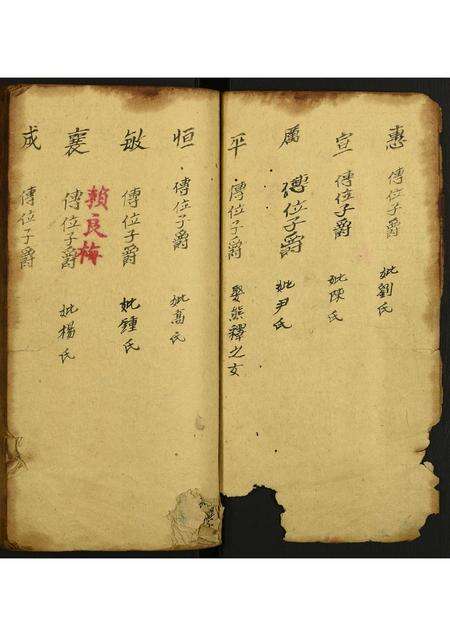 惠 傳位子爵 妣劉氏
宣 傳位子爵 妣陳氏
厲 傳位子爵 妣尹氏
平 傳位子爵 娶熊釋之女
恒 傳位子爵 妣高氏
敏 傳位子爵 妣鍾氏
賴良梅
襄 傳位子爵 妣楊氏
成 傳位子爵